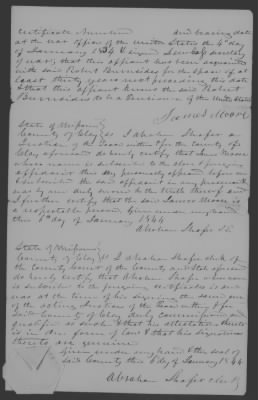 Certificate Numbered and bearing date
at the War Office of the United States the 4th day
of January 1834 & signed Lewis Cass Secretary
of war, that this affiant has been acquainted
with said Robert Burnsides for the space of at
least thirty years next preceding this date
& that this affiant knows the said Robert
Burnsides to be a Pensioner of the United States
James Moore
State of Missouri
County of Clay Ss I Abraham Shafer a
Justice of the Peace within & for the County of
Clay aforesaid do hereby certify that James Moore
whose name is subscribed to the above & foregoing
affidavit this day personally appeared before me
& subscribed the said affidavit in my presence &
was by me duly sworn to the truth thereof and
I further certify that the said James Moore is
a respectable person. Given under my hand
this 6th day of January 1844
Abraham Shafer J.P.
State of Missouri
County of Clay Ss I Abraham Shafer clerk of
the County Court of the County & State aforesaid
do hereby certify that Abraham Shafer whose name
is subscribed to the foregoing certificates is and
was at the time of his signing the same one
of the acting Justices of the Peace within & for
said County of Clay duly commissioned and
qualified as such & that his attestation thereto
is in due form of law & that his signatures
thereto are genuine
Given under my hand & the seal of
said County this 6th day of January 1844
Abraham Shafer Clerk